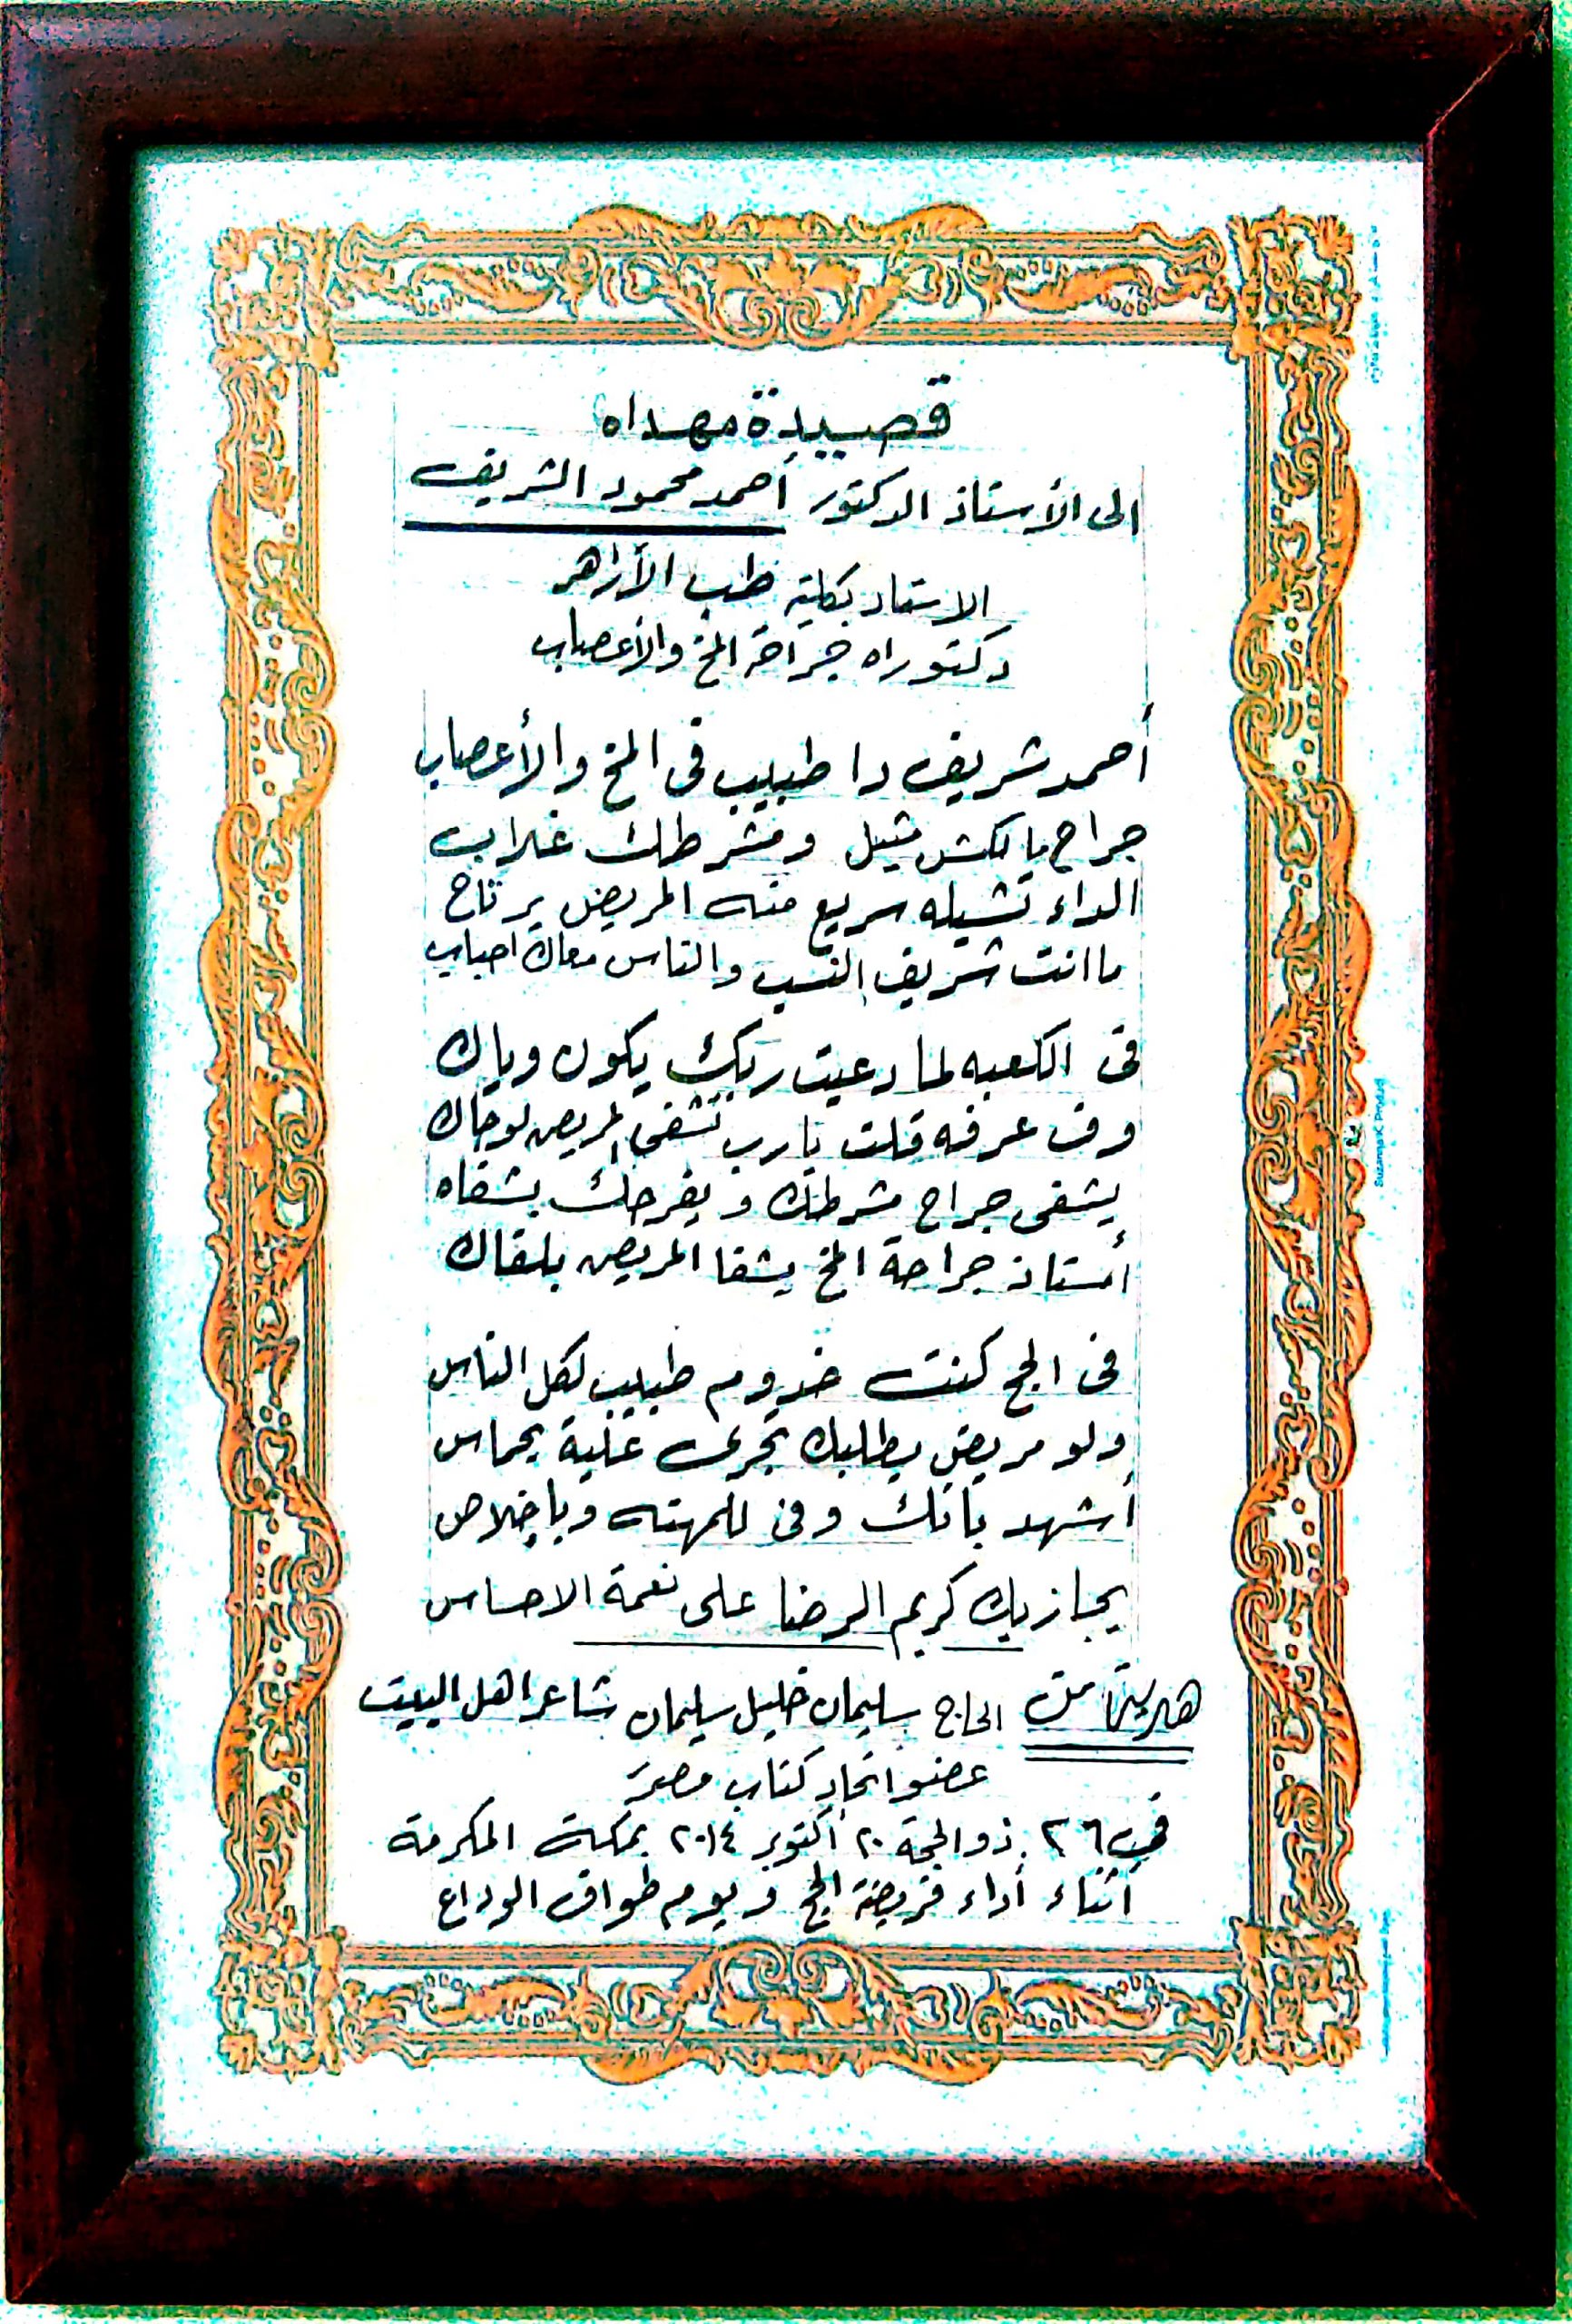 قصيدة مهداه
الى الأستاذ الدكتور أحمد محمود الشريف
الاستاذ بكلية طب الأزهر
دكتوراه جراحة المخ والأعصاب
أحمد شريف دا طبيب فى المخ والأعصاب
جراح مالكش مثيل ومشرطك غلاب
الداء تشيله سريع منه المريض يرتاح
ما انت شريف النسب والناس معاك احباب
فى الكعبه لما دعيت ربك يكون وياك
وف عرفه قلت يارب تشفى المريض لو جاك
يشفى جراح مشرطك ويفرحك بشفاه
أستاذ جراحة المخ يشفا المريض بلقاك
فى الحج كنت خدوم طبيب لكل الناس
ولو مريض يطلبك تجرى علية بحماس
أشهد بانك وفى للمهنه وبإخلاص
يجازيك كريم الرضا على نعمة الاحساس
هديتة من الحاج سليمان خليل سليمان شاعر اهل البيت
عضو اتحاد كتاب مصر
فى ٢٦ ذو الحجة ٢٠ أكتوبر ٢٠١٤ بمكة المكرمة
أثناء أداء فريضة الحج ويوم طواف الوداع